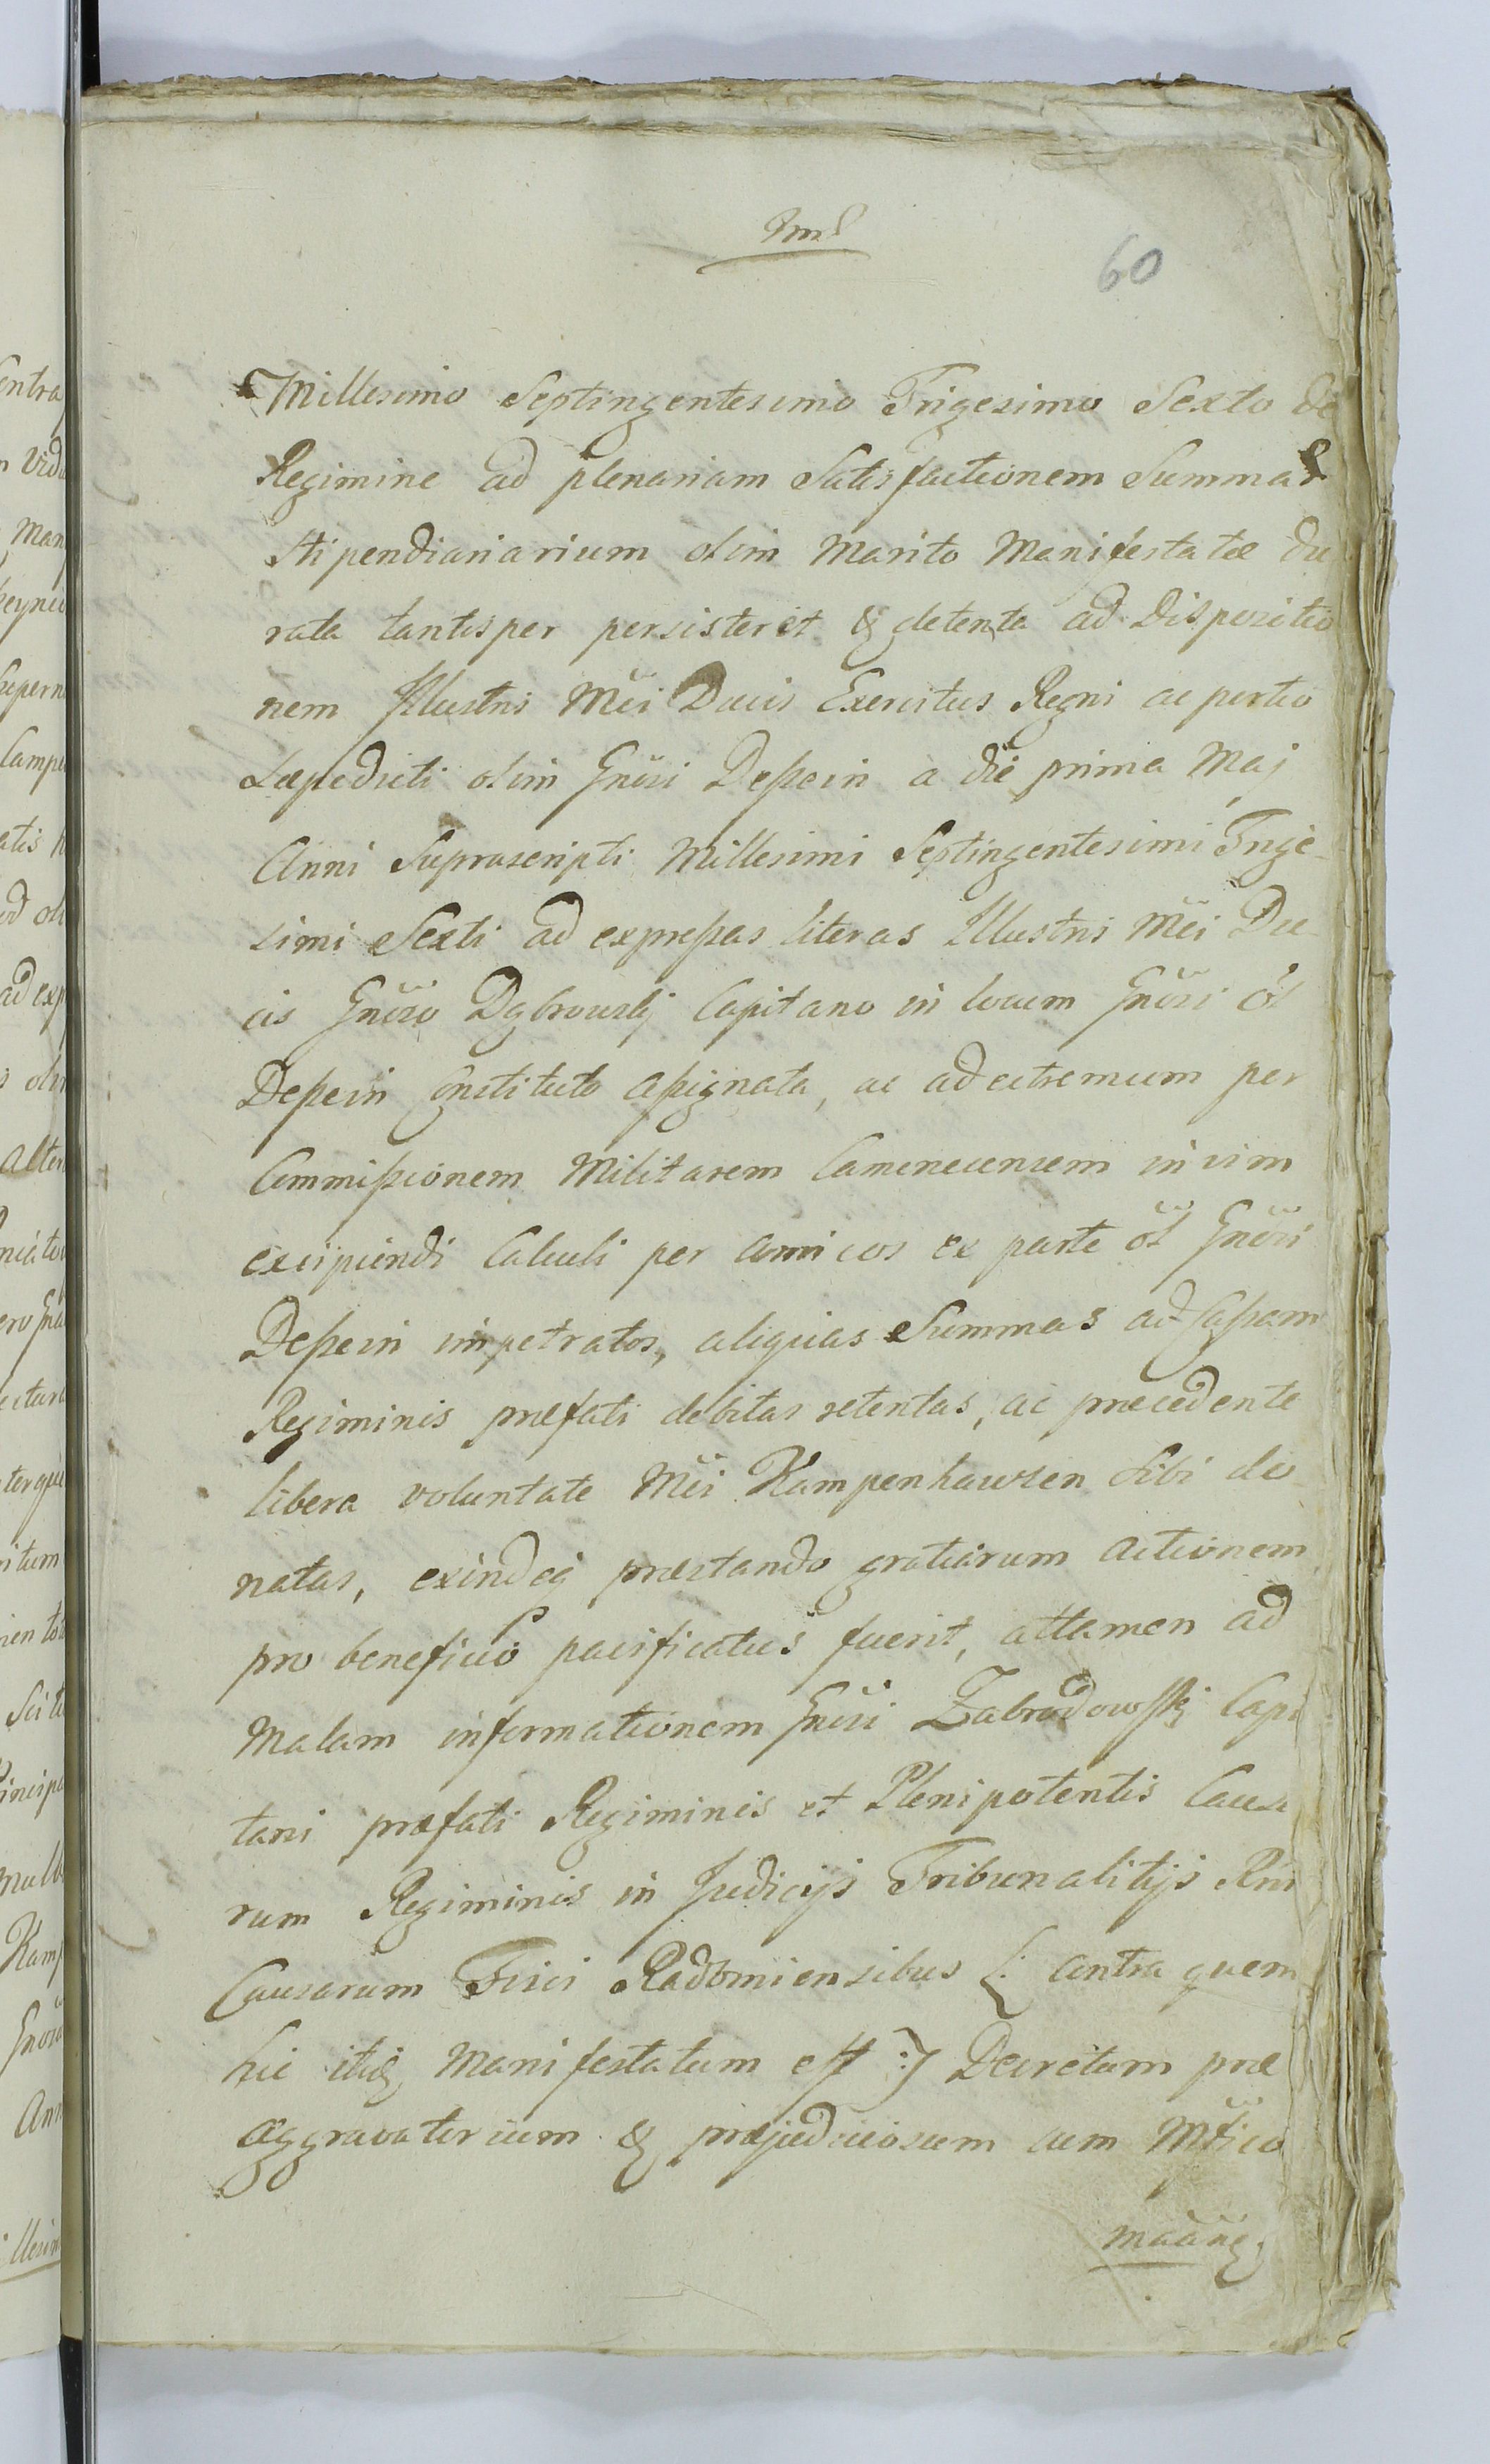 60
Millesimo Septingentesimo Trigesimo Sexto de
Regimine ad plenariam Satisfactionem Summar
Stipendiariarium olim Marito Manifestatæ du
rata tantisper persisteret & detenta ad Dispozitio
nem Illustris Mci Ducis Exercitus Regni ac portio
Læpedicti olim Gnosi Depein a die prima Maj
Anni Suprascripti Millesimi Septingentesimi Trige-
simi Sexti ad expressas literas Illustris Mci Du-
cis Gnoso Dąbrowski Capitano in locum Gnosi ol
Depein Constituto assignata, ac ad extremum per
Commissionem Militarem Camenecensem in vim
excipiendi Calculi per amicos ex parte ol Gnosi
Depein impetratos, aliquas Summas ad Cassam
Regiminis præfati debitas retentas, ac præcedente
libera voluntate Mci Kampenhawzen Sibi do-
natas, exindeq præstando gratiarum actionem
pro beneficio pacificatus fuerit, attamen ad
Malam informationem Gnosi Zabrodowski Capi
tani præfati Regiminis et Plenipotentis Causa
rum Regiminis in Judicijs Tribunalitijs Rni
Causarum Fisci Radomiensibus (: Contra quem
hic itidq Manifestatum est :) Decretum præ
aggravatorium & præjudiciosum cum Mtico